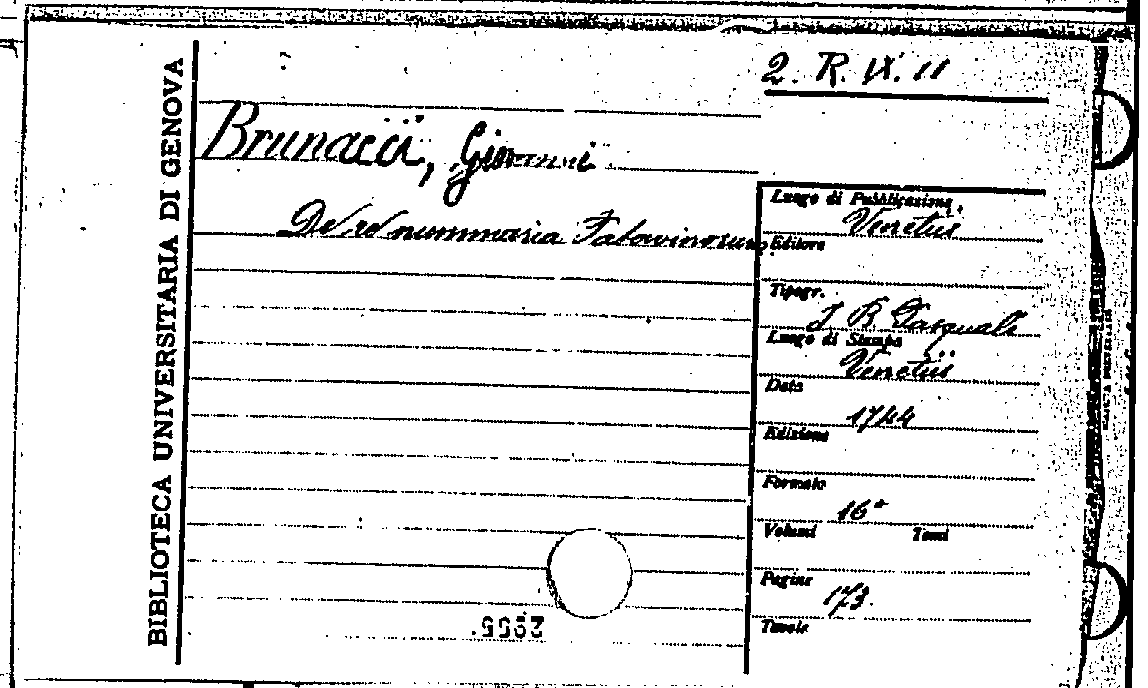 BIBLIOTECA UNIVERSITARIA DI GENOVA
2. R. IX. 11
Brunacci, Giovanni
De re nummaria Patavinorum
Luogo di Pubblicazione
Venetiis
Editore
Tipogr.
J B Pasquali
Luogo di Stampa
Venetiis
Data
1744
Edizione
Formato
16°
Volumi Tomi
Pagine
173.
Tavole